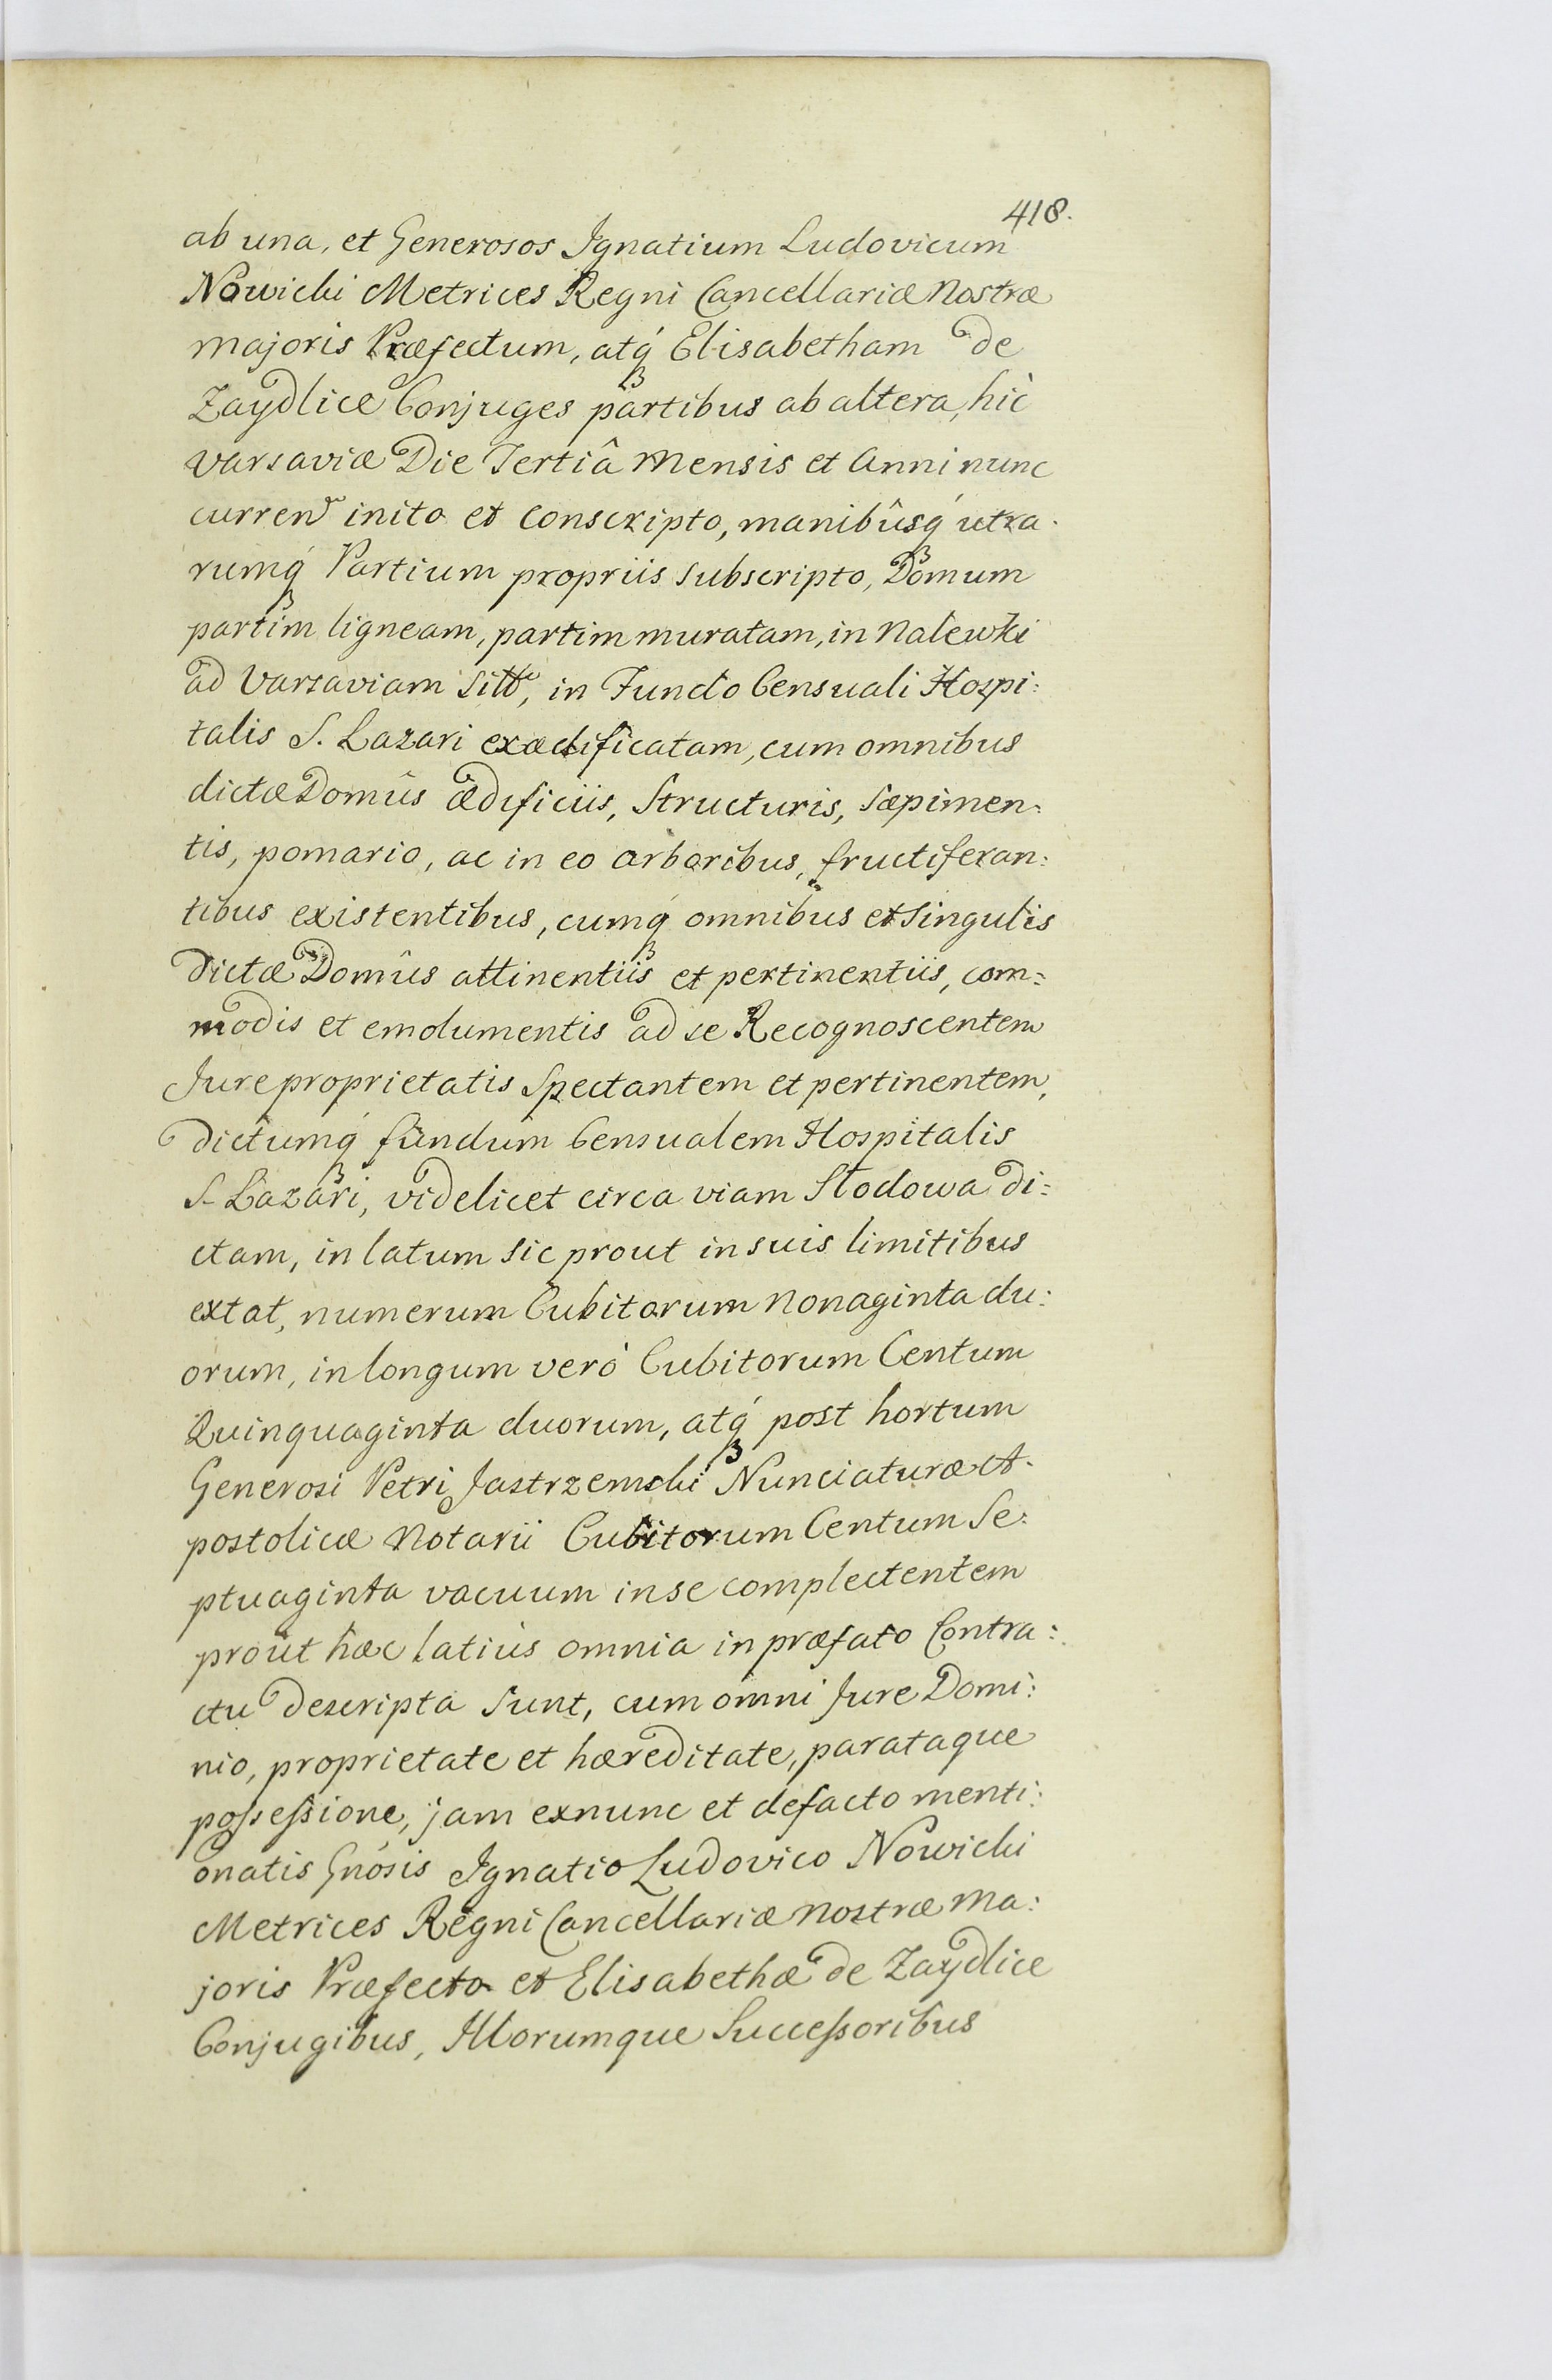 418.
ab una, et Generosos Ignatium Ludovicum
Nowicki Metrices Regni Cancellariæ Nostræ
majoris Præfectum, atq́ꝫ Elisabetham de
Zaydlice Conjuges partibus ab altera, hìc
Varsaviæ Die Tertiâ Mensis et Anni nunc
curren inito et conscripto, manibûsq́ꝫ utra-
rumq́ꝫ Partium propriis subscripto, Domum
partim ligneam, partim muratam, in Nalewki
ad Varsaviam sitt, in Fundo Censuali Hospi:
talis S. Lazari exædificatam, cum omnibus
dictæ Domûs ædificiis, Structuris, Sæpimen:
tis, pomario, ac in eo arboribus, fructiferan:
tibus existentibus, cumq́ꝫ omnibus et Singulis
dictæ Domûs attinentiis et pertinentiis, com:
modis et emolumentis ad se Recognoscentem
Jure proprietatis Spectantem et pertinentem,
dictumq́ꝫ fundum Censualem Hospitalis
S. Lazari, videlicet circa viam Słodowa di:
ctam, in latum sic prout in suis limitibus
extat, numerum Cubitorum Nonaginta du:
orum, in longum verò Cubitorum Centum
Quinquaginta duorum, atq́ꝫ post hortum
Generosi Petri Jastrzemski Nunciaturæ A-
postolicæ Notarii Cubitorum Centum Se:
ptuaginta vacuum in se complectentem
prout hæc latiùs omnia in præfato Contra:
ctu descripta sunt, cum omni Jure Domi:
nio, proprietate et hæreditate, parataque
possessione, jam exnunc et defacto menti:
onatis Gnósis Ignatio Ludovico Nowicki
Metrices Regni Cancellariæ Nostræ Ma:
joris Præfecto et Elisabethæ de Zaydlice
Conjugibus, Illorumque Successoribus